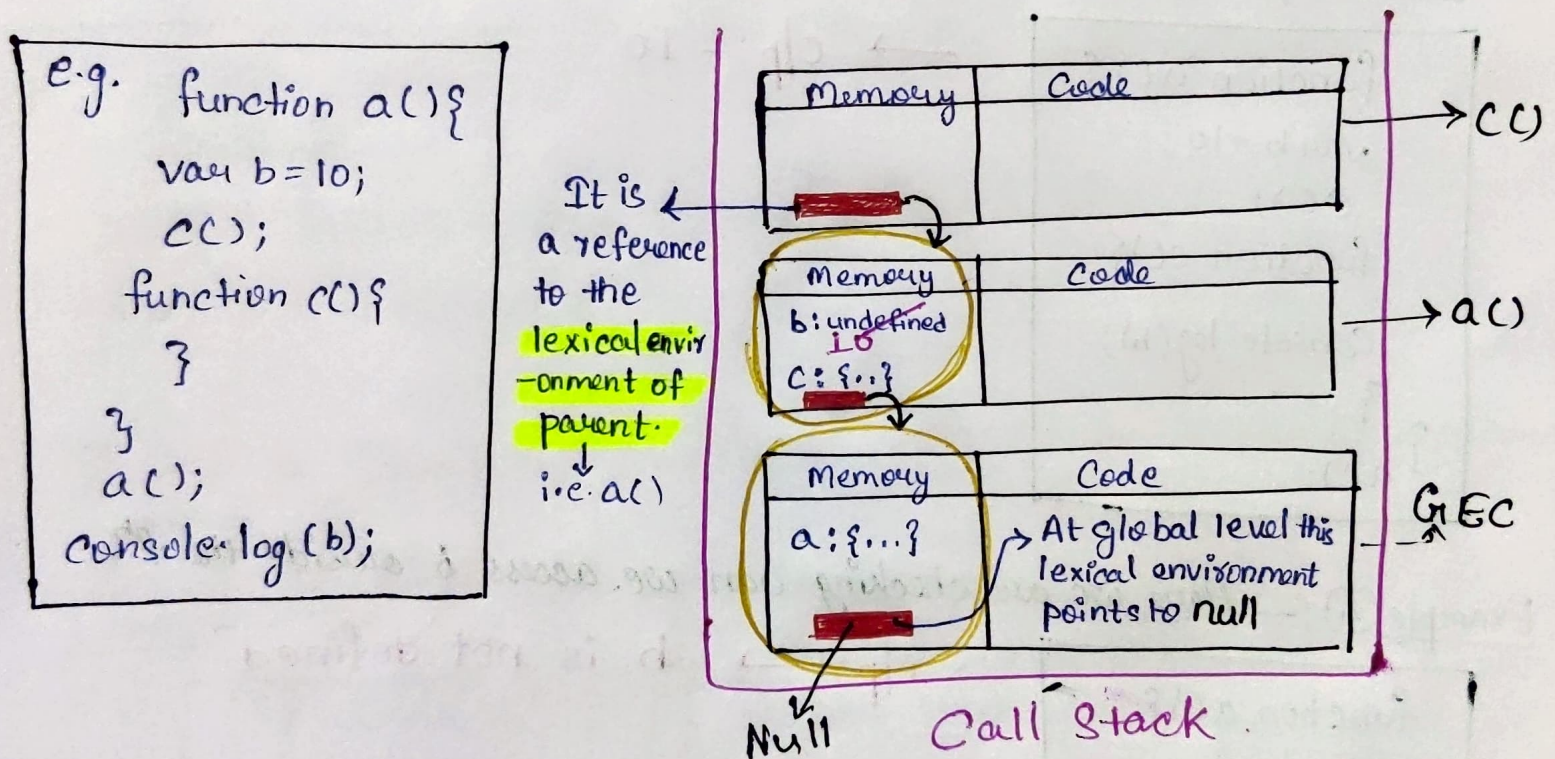 e.g. function a(){
var b=10;
c();
function c(){
}
}
a();
console.log(b);
It is
a reference
to the
lexical envir
-onment of
parent.
i.e. a()
Memory Code
c()
Memory Code
b: undefined
10
c: {..}
a()
Memory Code
a: {...}
At global level this
lexical environment
points to null
GEC
Null
Call Stack